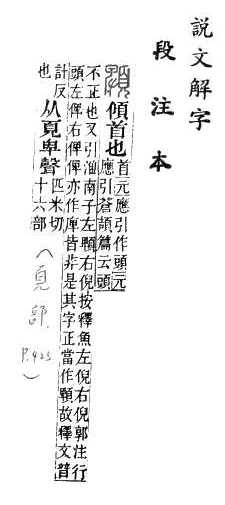 說文解字
段注本
傾首也
首元應引作頭元
應引蒼頡篇云頭
不正也又引淮南子左䫌右倪按釋魚左倪右倪郭注行
頭左俾右俾俾亦作庳皆非是其字正當作䫌故釋文普
計反
也
从頁卑聲
匹米切
十六部
(頁部. P.423)